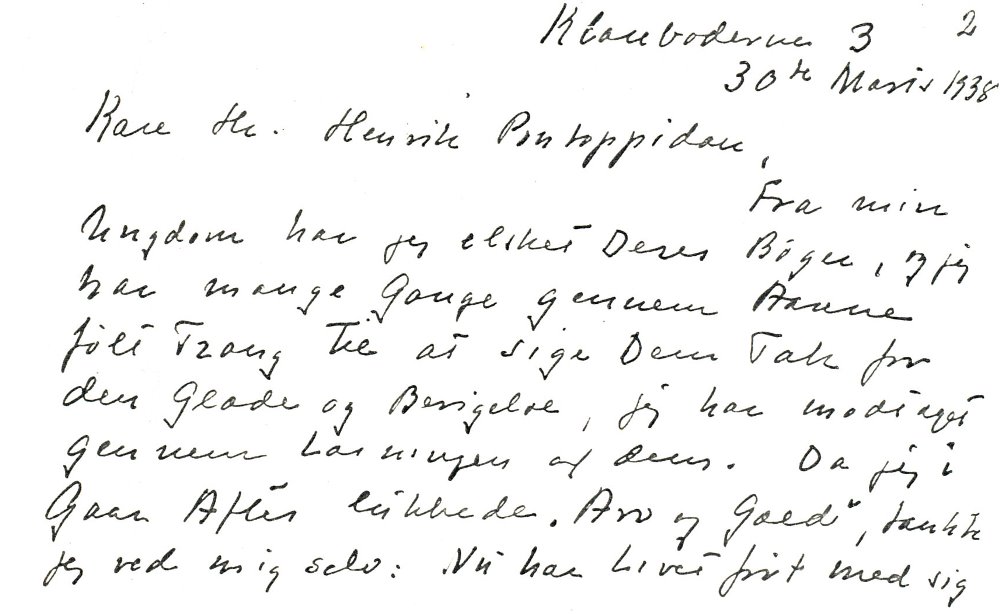 Klareboderne 3 2
30te Marts 1938
Kære Hr. Henrik Pontoppidan,
Fra min
Ungdom har jeg elsket Deres Bøger, og jeg
har mange Gange gennem Aarene
følt Trang til at sige Dem Tak for
den Glæde og Berigelse, jeg har modtaget
gennem Læsningen af dem. Da jeg i
Gaar Aftes lukkede "Arv og Gæld", tænkte
jeg ved mig selv: Nu har Livet ført med sig